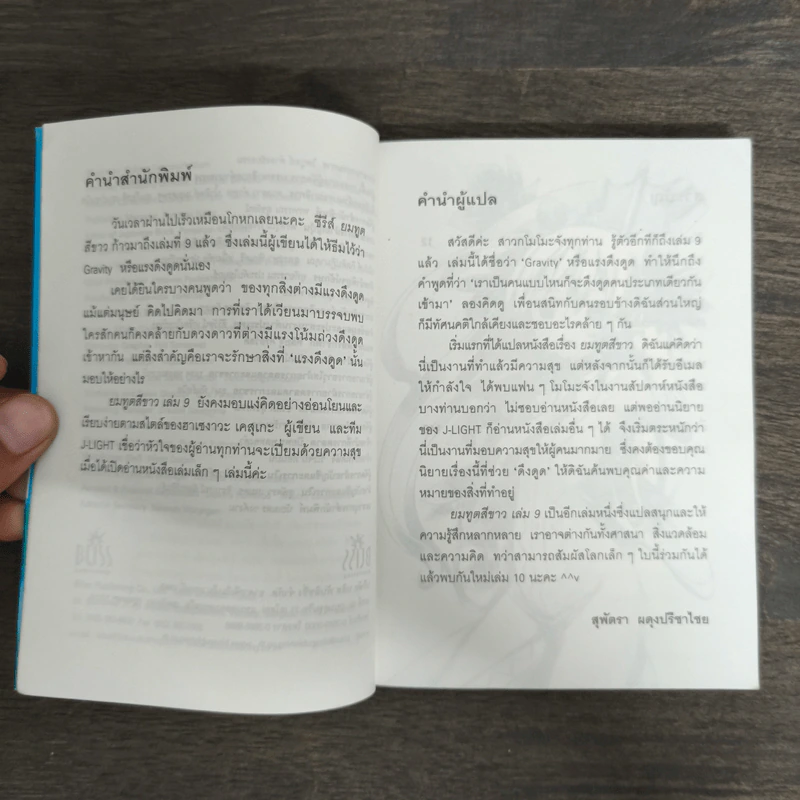 คำนำสำนักพิมพ์
วันเวลาผ่านไปเร็วเหมือนโกหกเลยนะคะ ซีรีส์ ยมทูต
สีขาว ก้าวมาถึงเล่มที่ 9 แล้ว ซึ่งเล่มนี้ผู้เขียนได้ให้ธีมไว้ว่า
Gravity หรือแรงดึงดูดนั่นเอง
เคยได้ยินใครบางคนพูดว่า ของทุกสิ่งต่างมีแรงดึงดูด
แม้แต่มนุษย์ คิดไปคิดมา การที่เราได้เวียนมาบรรจบพบ
ใครสักคนก็คงคล้ายกับดวงดาวที่ต่างมีแรงโน้มถ่วงดึงดูด
เข้าหากัน แต่สิ่งสำคัญคือเราจะรักษาสิ่งที่ ‘แรงดึงดูด’ นั้น
มอบให้อย่างไร
ยมทูตสีขาว เล่ม 9 ยังคงมอบแง่คิดอย่างอ่อนโยนและ
เรียบง่ายตามสไตล์ของฮาเซงาวะ เคสุเกะ ผู้เขียน และทีม
J-LIGHT เชื่อว่าหัวใจของผู้อ่านทุกท่านจะเปี่ยมด้วยความสุข
เมื่อได้เปิดอ่านหนังสือเล่มเล็ก ๆ เล่มนี้ค่ะ
คำนำผู้แปล
สวัสดีค่ะ สาวกโมโมะจังทุกท่าน รู้ตัวอีกทีก็ถึงเล่ม 9
แล้ว เล่มนี้ได้ชื่อว่า ‘Gravity’ หรือแรงดึงดูด ทำให้นึกถึง
คำพูดที่ว่า ‘เราเป็นคนแบบไหนก็จะดึงดูดคนประเภทเดียวกัน
เข้ามา’ ลองคิดดู เพื่อนสนิทกับคนรอบข้างดิฉันส่วนใหญ่
ก็มีทัศนคติใกล้เคียงและชอบอะไรคล้าย ๆ กัน
เริ่มแรกที่ได้แปลหนังสือเรื่อง ยมทูตสีขาว ดิฉันแค่คิดว่า
นี่เป็นงานที่ทำแล้วมีความสุข แต่หลังจากนั้นก็ได้รับอีเมล
ให้กำลังใจ ได้พบแฟน ๆ โมโมะจังในงานสัปดาห์หนังสือ
บางท่านบอกว่า ไม่ชอบอ่านหนังสือเลย แต่พออ่านนิยาย
ของ J-LIGHT ก็อ่านหนังสือเล่มอื่น ๆ ได้ จึงเริ่มตระหนักว่า
นี่เป็นงานที่มอบความสุขให้ผู้คนมากมาย ซึ่งคงต้องขอบคุณ
นิยายเรื่องนี้ที่ช่วย ‘ดึงดูด’ ให้ดิฉันค้นพบคุณค่าและความ
หมายของสิ่งที่ทำอยู่
ยมทูตสีขาว เล่ม 9 เป็นอีกเล่มหนึ่งซึ่งแปลสนุกและให้
ความรู้สึกหลากหลาย เราอาจต่างกันทั้งศาสนา สิ่งแวดล้อม
และความคิด ทว่าสามารถสัมผัสโลกเล็ก ๆ ใบนี้ร่วมกันได้
แล้วพบกันใหม่เล่ม 10 นะคะ ^^v
สุพัตรา ผดุงปรีชาไชย